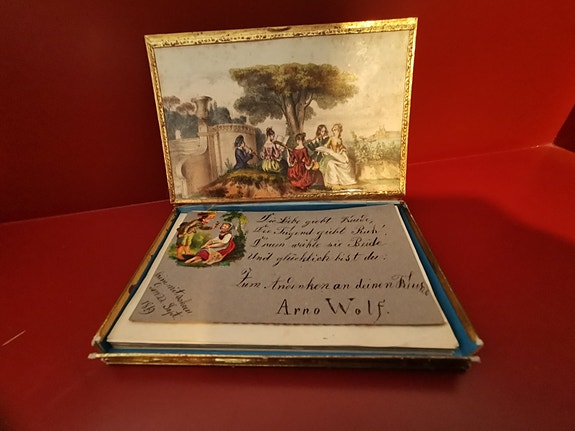 Die Liebe giebt Freude,
Die Tugend giebt Ruh',
D'rum wähle sie Beide
Und glücklich bist du.
Zum Andenken an deinen
Arno Wolf.
den 22. Sept.